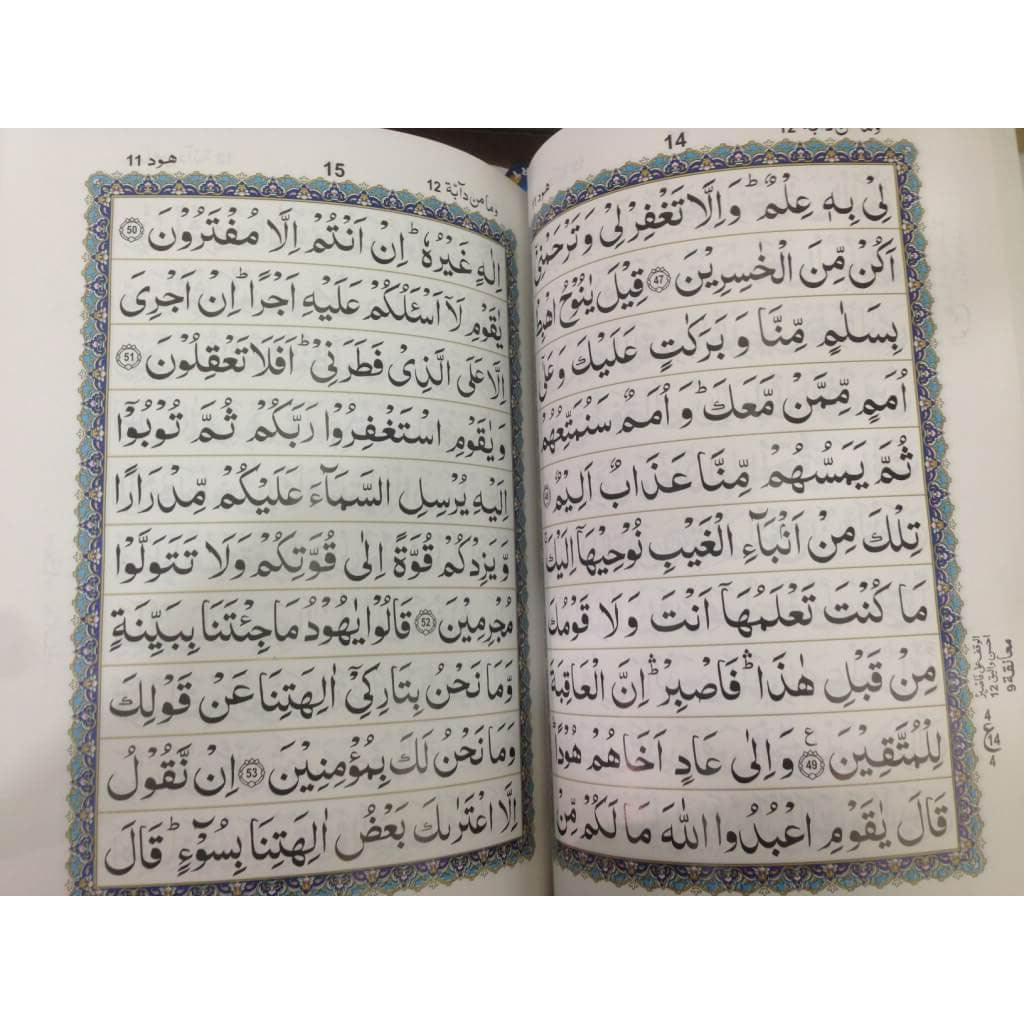 14
وما من دآبة 12
هود 11
لِىْ بِهٖ عِلْمٌ ؕ وَاِلَّا تَغْفِرْ لِىْ وَتَرْحَمْنِىْ
اَكُنْ مِّنَ الْخٰسِرِيْنَ 47 قِيْلَ يٰنُوْحُ اهْبِطْ
بِسَلٰمٍ مِّنَّا وَ بَرَكٰتٍ عَلَيْكَ وَعَلٰٓى
اُمَمٍ مِّمَّنْ مَّعَكَ ؕ وَ اُمَمٌ سَنُمَتِّعُهُمْ
ثُمَّ يَمَسُّهُمْ مِّنَّا عَذَابٌ اَلِيْمٌ
تِلْكَ مِنْ اَنْۢبَآءِ الْغَيْبِ نُوْحِيْهَاۤ اِلَيْكَ
مَا كُنْتَ تَعْلَمُهَاۤ اَنْتَ وَلَا قَوْمُكَ
مِنْ قَبْلِ هٰذَا ۛؕ فَاصْبِرْ ۛؕ اِنَّ الْعَاقِبَةَ
لِلْمُتَّقِيْنَ 49 ع وَاِلٰى عَادٍ اَخَاهُمْ هُوْدًا ؕ
قَالَ يٰقَوْمِ اعْبُدُوا اللّٰهَ مَا لَكُمْ مِّنْ
معانقة 9
4
14
4
هود 11
15
وما من دآبة 12
اِلٰهٍ غَيْرُهٗ ؕ اِنْ اَنْتُمْ اِلَّا مُفْتَرُوْنَ 50
يٰقَوْمِ لَاۤ اَسْئَلُكُمْ عَلَيْهِ اَجْرًا ؕ اِنْ اَجْرِىَ
اِلَّا عَلَى الَّذِىْ فَطَرَنِىْ ؕ اَفَلَا تَعْقِلُوْنَ 51
وَيٰقَوْمِ اسْتَغْفِرُوْا رَبَّكُمْ ثُمَّ تُوْبُوْۤا
اِلَيْهِ يُرْسِلِ السَّمَآءَ عَلَيْكُمْ مِّدْرَارًا
وَّيَزِدْكُمْ قُوَّةً اِلٰى قُوَّتِكُمْ وَلَا تَتَوَلَّوْا
مُجْرِمِيْنَ 52 قَالُوْا يٰهُوْدُ مَا جِئْتَنَا بِبَيِّنَةٍ
وَّمَا نَحْنُ بِتَارِكِىْۤ اٰلِهَتِنَا عَنْ قَوْلِكَ
وَمَا نَحْنُ لَكَ بِمُؤْمِنِيْنَ 53 اِنْ نَّقُوْلُ
اِلَّا اعْتَرٰىكَ بَعْضُ اٰلِهَتِنَا بِسُوْٓءٍ ؕ قَالَ